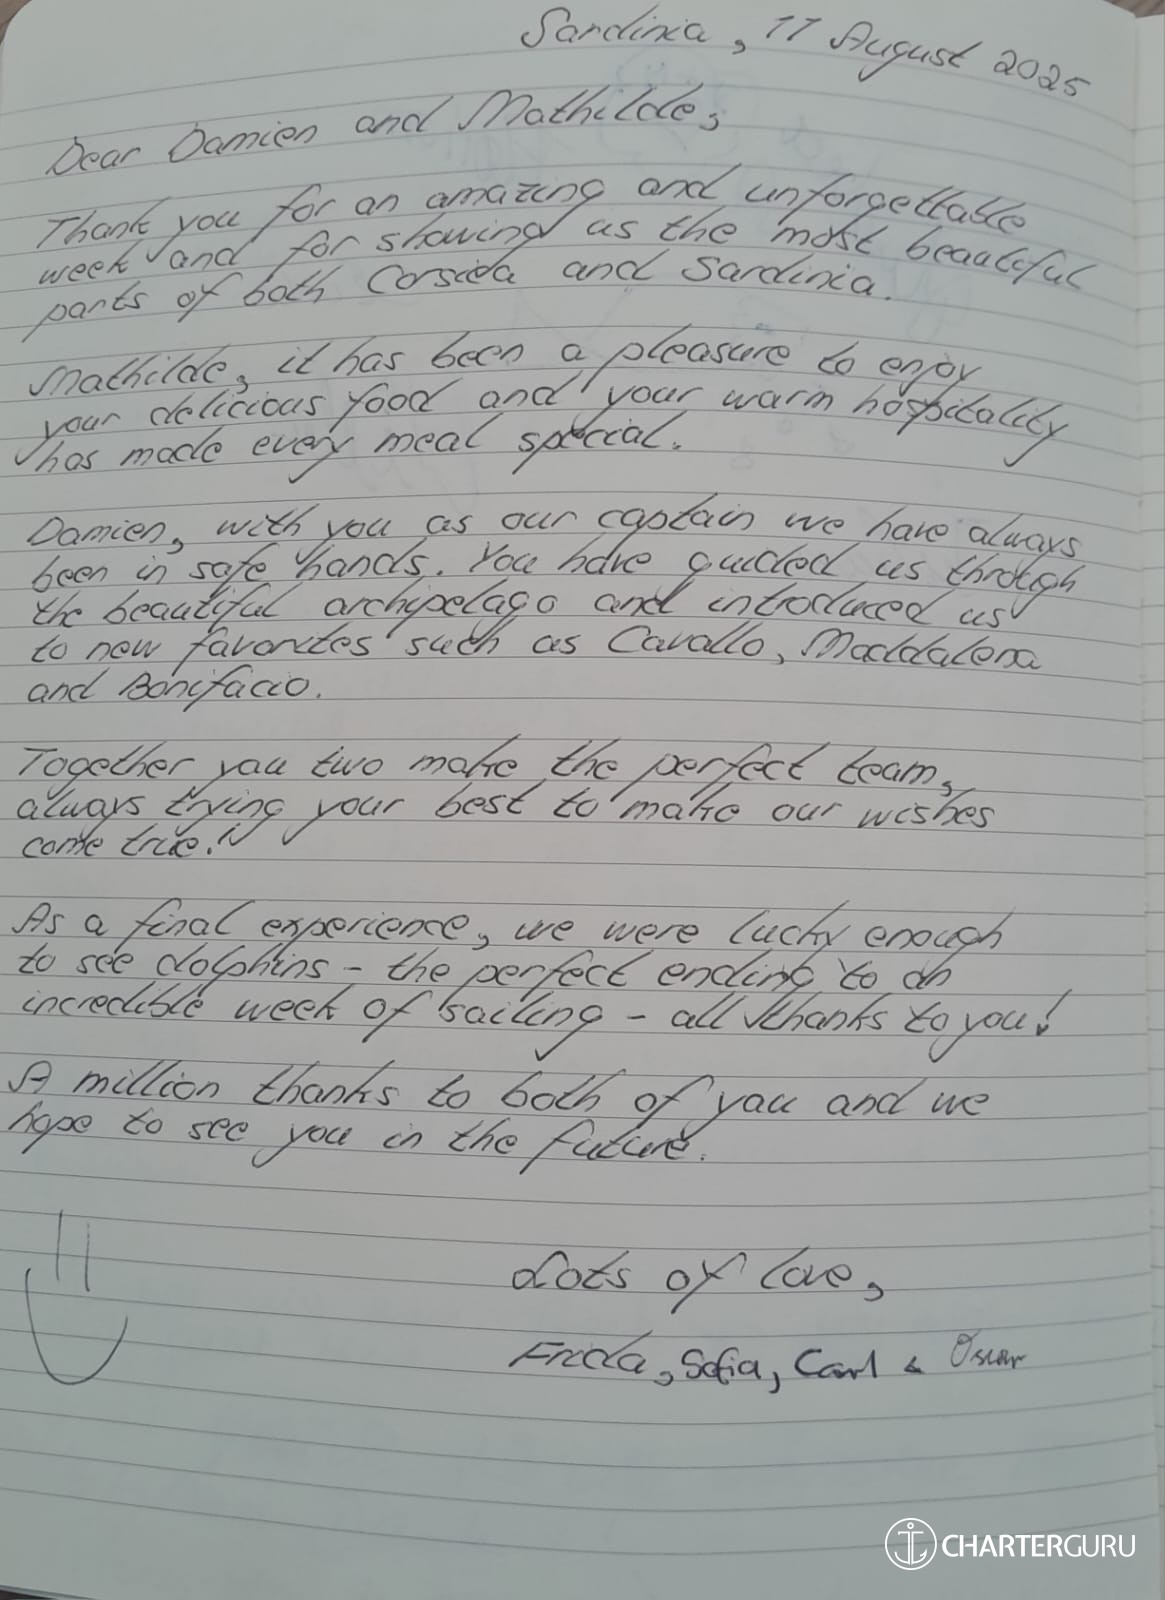 Sardinia, 11 August 2025
Dear Damien and Mathilde,
Thank you for an amazing and unforgettable
week and for showing us the most beautiful
parts of both Corsica and Sardinia.
Mathilde, it has been a pleasure to enjoy
your delicious food and your warm hospitality
has made every meal special.
Damien, with you as our captain we have always
been in safe hands. You have guided us through
the beautiful archipelago and introduced us
to new favorites such as Cavallo, Maddalena
and Bonifacio.
Together you two make the perfect team,
always trying your best to make our wishes
come true.
As a final experience, we were lucky enough
to see dolphins - the perfect ending to an
incredible week of sailing - all thanks to you!
A million thanks to both of you and we
hope to see you in the future.
Lots of love,
Frida, Sofia, Carl & Oscar
CHARTERGURU